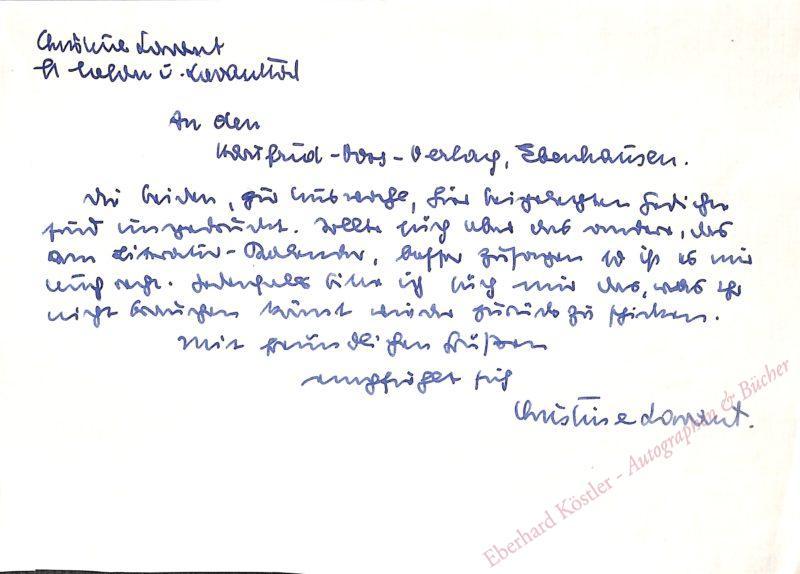 Christine Lavant
St Stefan i. Lavanttal
An den
Hartfrid-Voss-Verlag, Ebenhausen.
Die beiden, zur Auswahl, hier beigelegten Gedichte
sind ungedruckt. Sollte Euch aber das andere, das
am Literatur-Kalender, besser zusagen so ist es mir
auch recht. Jedenfalls bitte ich Euch mir das, was Ihr
nicht brauchen könnt wieder zurück zu schicken.
Mit freundlichen Grüßen
empfiehlt sich
Christine Lavant.
Eberhard Köstler - Autographen & Bücher